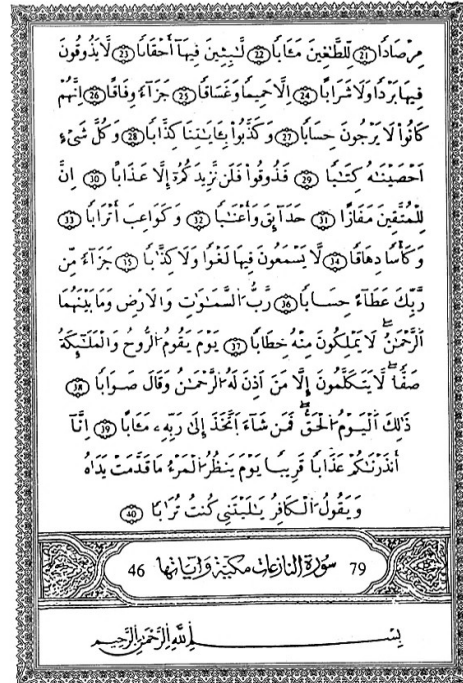 مِرْصَادًا 21 لِّلطَّٰغِينَ مَـَٔابًا 22 لَّٰبِثِينَ فِيهَآ أَحْقَابًا 23 لَّا يَذُوقُونَ
فِيهَا بَرْدًا وَلَا شَرَابًا 24 إِلَّا حَمِيمًا وَغَسَاقًا 25 جَزَآءً وِفَاقًا 26 إِنَّهُمْ
كَانُوا۟ لَا يَرْجُونَ حِسَابًا 27 وَكَذَّبُوا۟ بِـَٔايَٰتِنَا كِذَّابًا 28 وَكُلَّ شَىْءٍ
اَحْصَيْنَٰهُ كِتَٰبًا 29 فَذُوقُوا۟ فَلَن نَّزِيدَكُمُۥٓ إِلَّا عَذَابًا 30 اِنَّ
لِلْمُتَّقِينَ مَفَازًا 31 حَدَآئِقَ وَأَعْنَٰبًا 32 وَكَوَاعِبَ أَتْرَابًا 33
وَكَأْسًا دِهَاقًا 34 لَّا يَسْمَعُونَ فِيهَا لَغْوًا وَلَا كِذَّٰبًا 35 جَزَآءً مِّن
رَّبِّكَ عَطَآءً حِسَابًا 36 رَبُّ السَّمَٰوَٰتِ وَالَارْضِ وَمَا بَيْنَهُمَا
اَلرَّحْمَٰنُ لَا يَمْلِكُونَ مِنْهُ خِطَابًا 37 يَوْمَ يَقُومُ الرُّوحُ وَالْمَلَٰٓئِكَةُ
صَفًّا لَّا يَتَكَلَّمُونَ إِلَّا مَنَ اَذِنَ لَهُ الرَّحْمَٰنُ وَقَالَ صَوَابًا 38
ذَٰلِكَ اَلْيَوْمُ الْحَقُّ فَمَن شَآءَ اَتَّخَذَ إِلَىٰ رَبِّهِۦ مَـَٔابًا 39 اِنَّآ
أَنذَرْنَٰكُمْ عَذَابًا قَرِيبًا يَوْمَ يَنظُرُ الْمَرْءُ مَا قَدَّمَتْ يَدَاهُ
وَيَقُولُ الْكَافِرُ يَٰلَيْتَنِى كُنتُ تُرَٰبًا 40
79 سورة النازعات مكية وآياتها 46
بِسْمِ اللَّهِ الرَّحْمَٰنِ الرَّحِيمِ